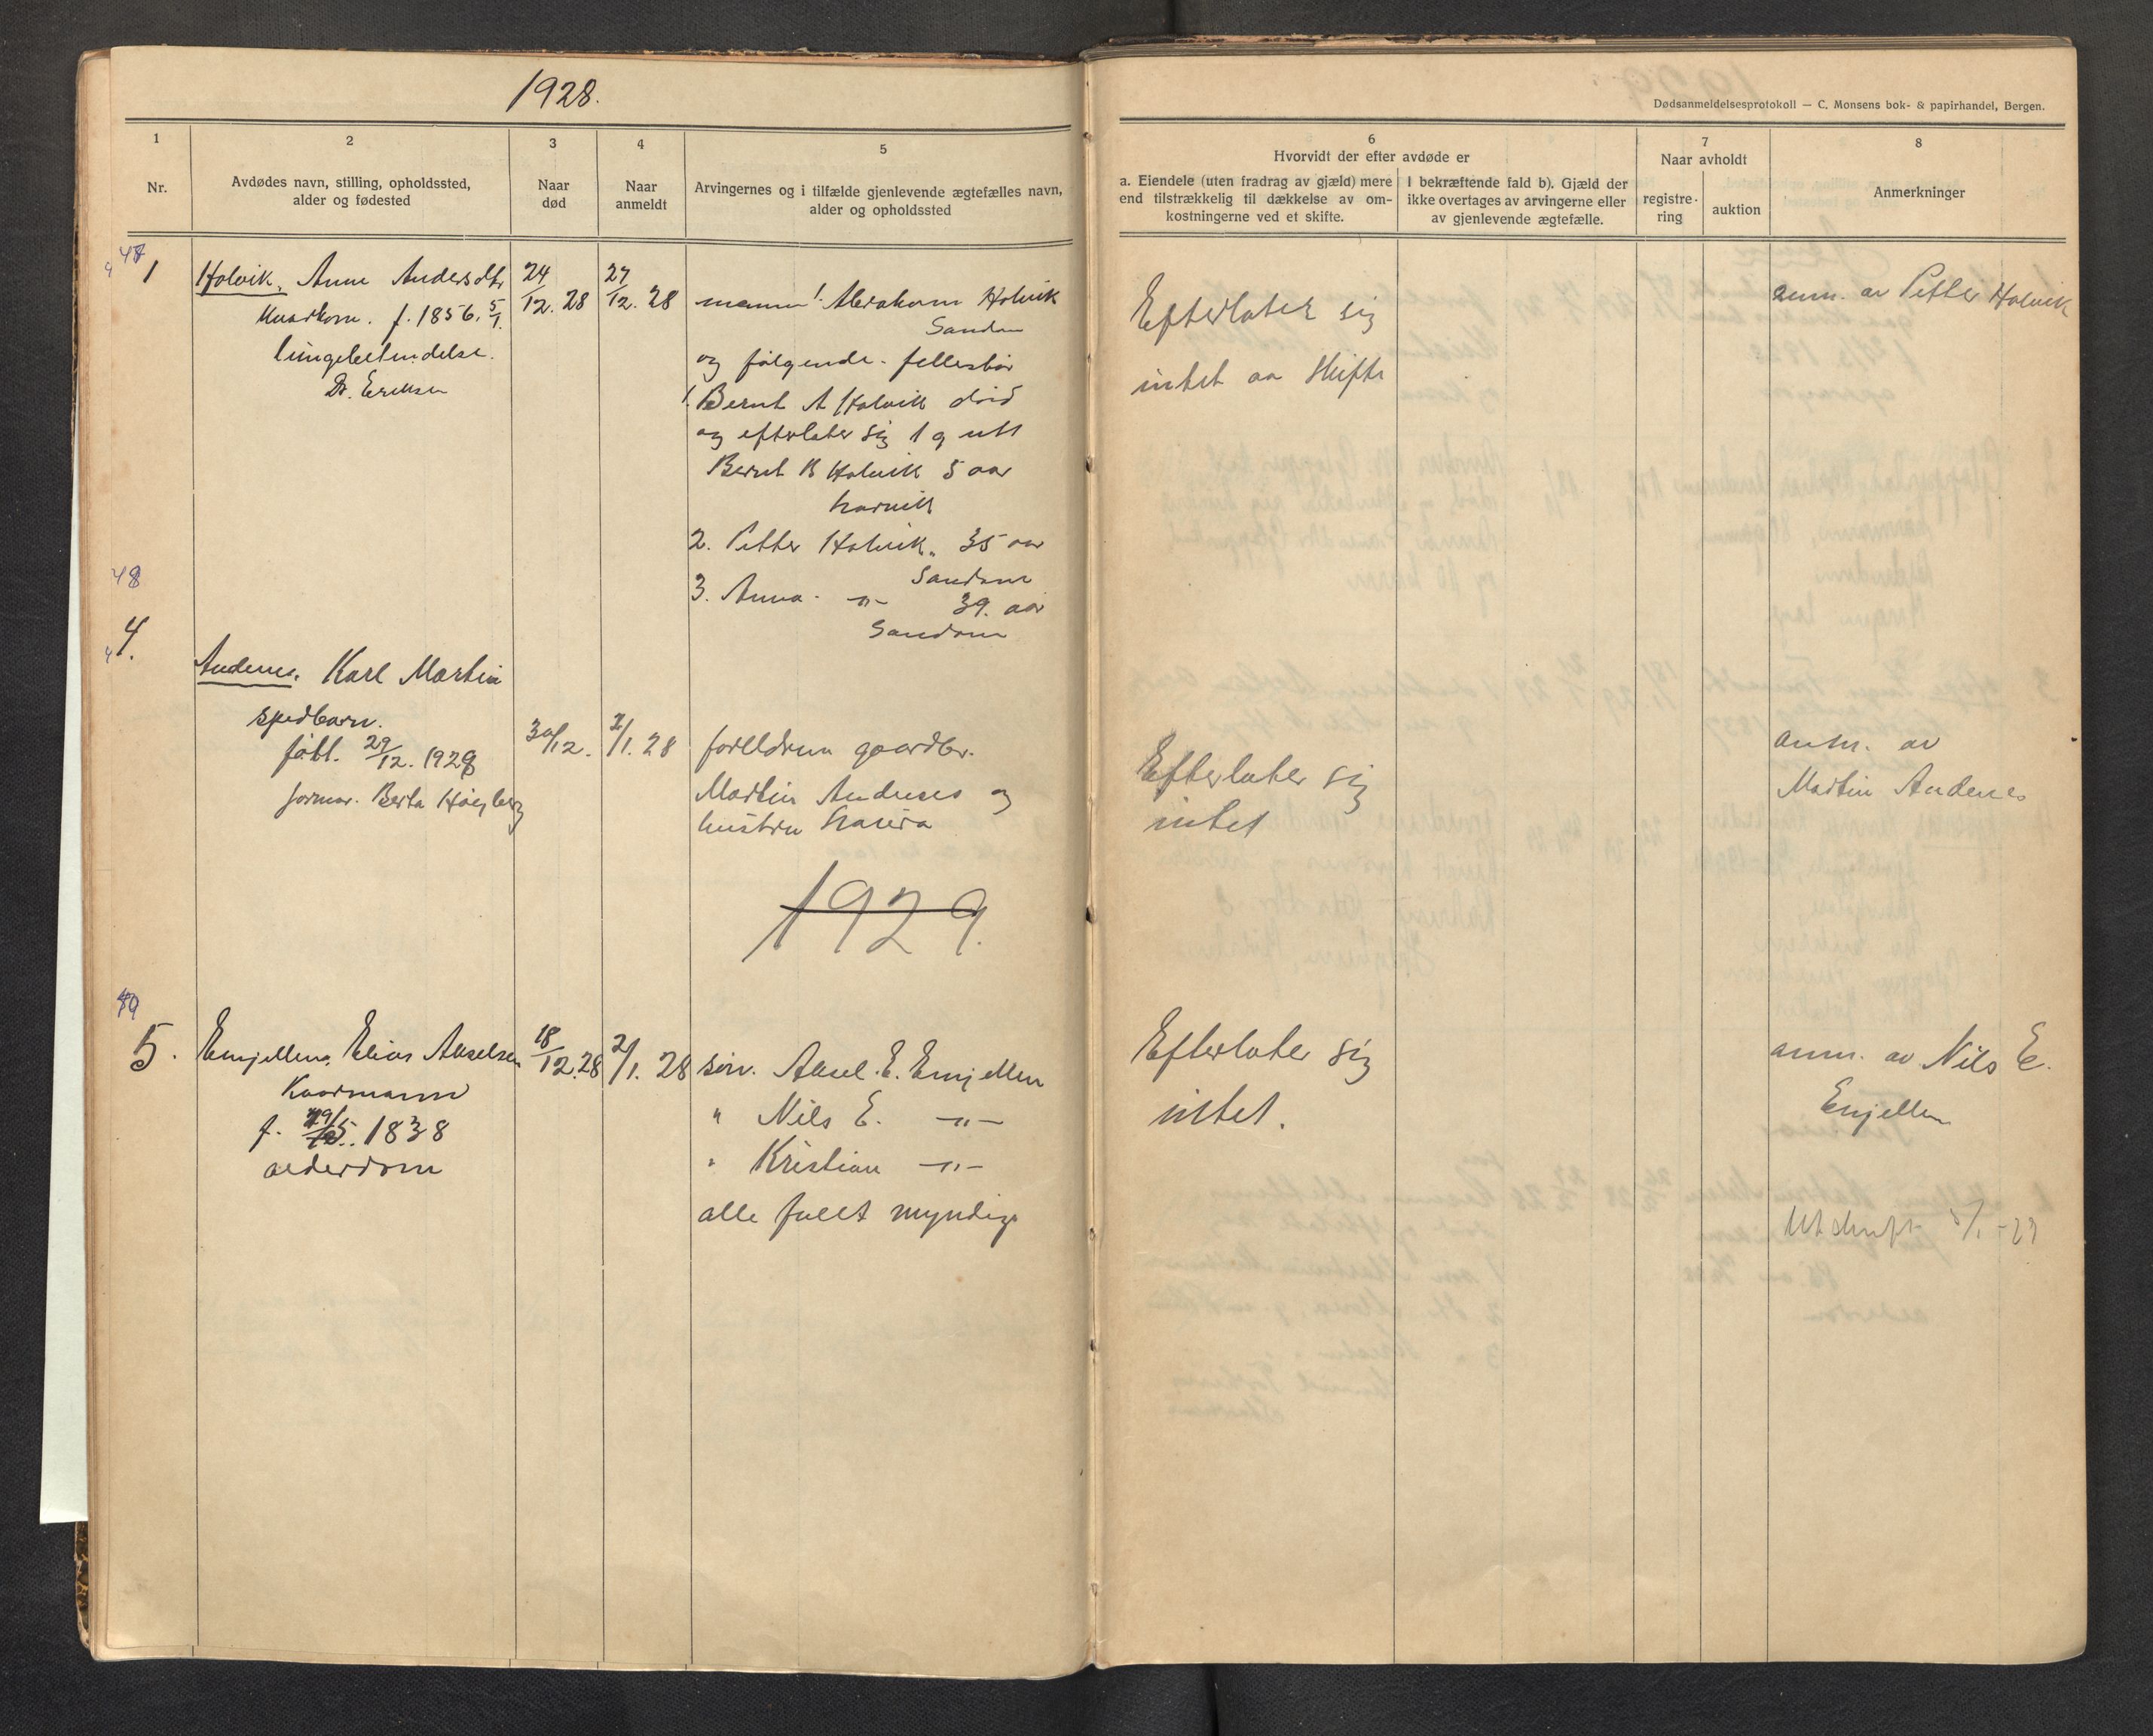 1928.
Dødsanmeldelsesprotokoll — C. Monsens bok- & papirhandel, Bergen.
1
Nr.
2
Avdødes navn, stilling, opholdssted,
alder og fødested
3
Naar
død
4
Naar
anmeldt
5
Arvingernes og i tilfælde gjenlevende ægtefælles navn,
alder og opholdssted
6
Hvorvidt der efter avdøde er
a. Eiendele (uten fradrag av gjæld) mere
end tilstrækkelig til dækkelse av om-
kostningerne ved et skifte.
I bekræftende fald b). Gjæld der
ikke overtages av arvingerne eller
av gjenlevende ægtefælle.
7
Naar avholdt
registre-
ring
auktion
8
Anmerkninger
47
1
Holvik, Anne Andersdtr
f. 1856. 5/1.
lungebetendelse.
Dr. Eriksen
24/12. 28
27/12. 28
mann: Abraham Holvik
Sandane
og følgende. fellesbør
1. Bernt A Holvik død
og efterlater sig 1 g utt
Bernt B Holvik 5 aar
Narvik
2. Petter Holvik, 35 aar
Sandane
3. Anna -"- 39. aar
Sandane
Efterlater sig
intet aa skifte
anm. av Petter Holvik
48
4.
Andenes, Karl Martin
spedbarn.
født. 29/12. 1928
jormor. Berta Høigberg
30/12.
2/1. 28
forelldrum gaardbr.
Martin Andenes og
hustru
Efterlater sig
intet
anm. av
Martin Andenes
1929.
49
5.
Emjellen, Elias Akselsen
Kaarmann
f. 5. 1838
alderdom
18/12. 28
2/1. 28
søn. Aksel. E. Emjellen
" Nils E. -"-
" Kristian -"-
alle fullt myndige
Efterlater sig
intet.
anm. av Nils E.
Emjellen
Utskrift 5/1 - 29